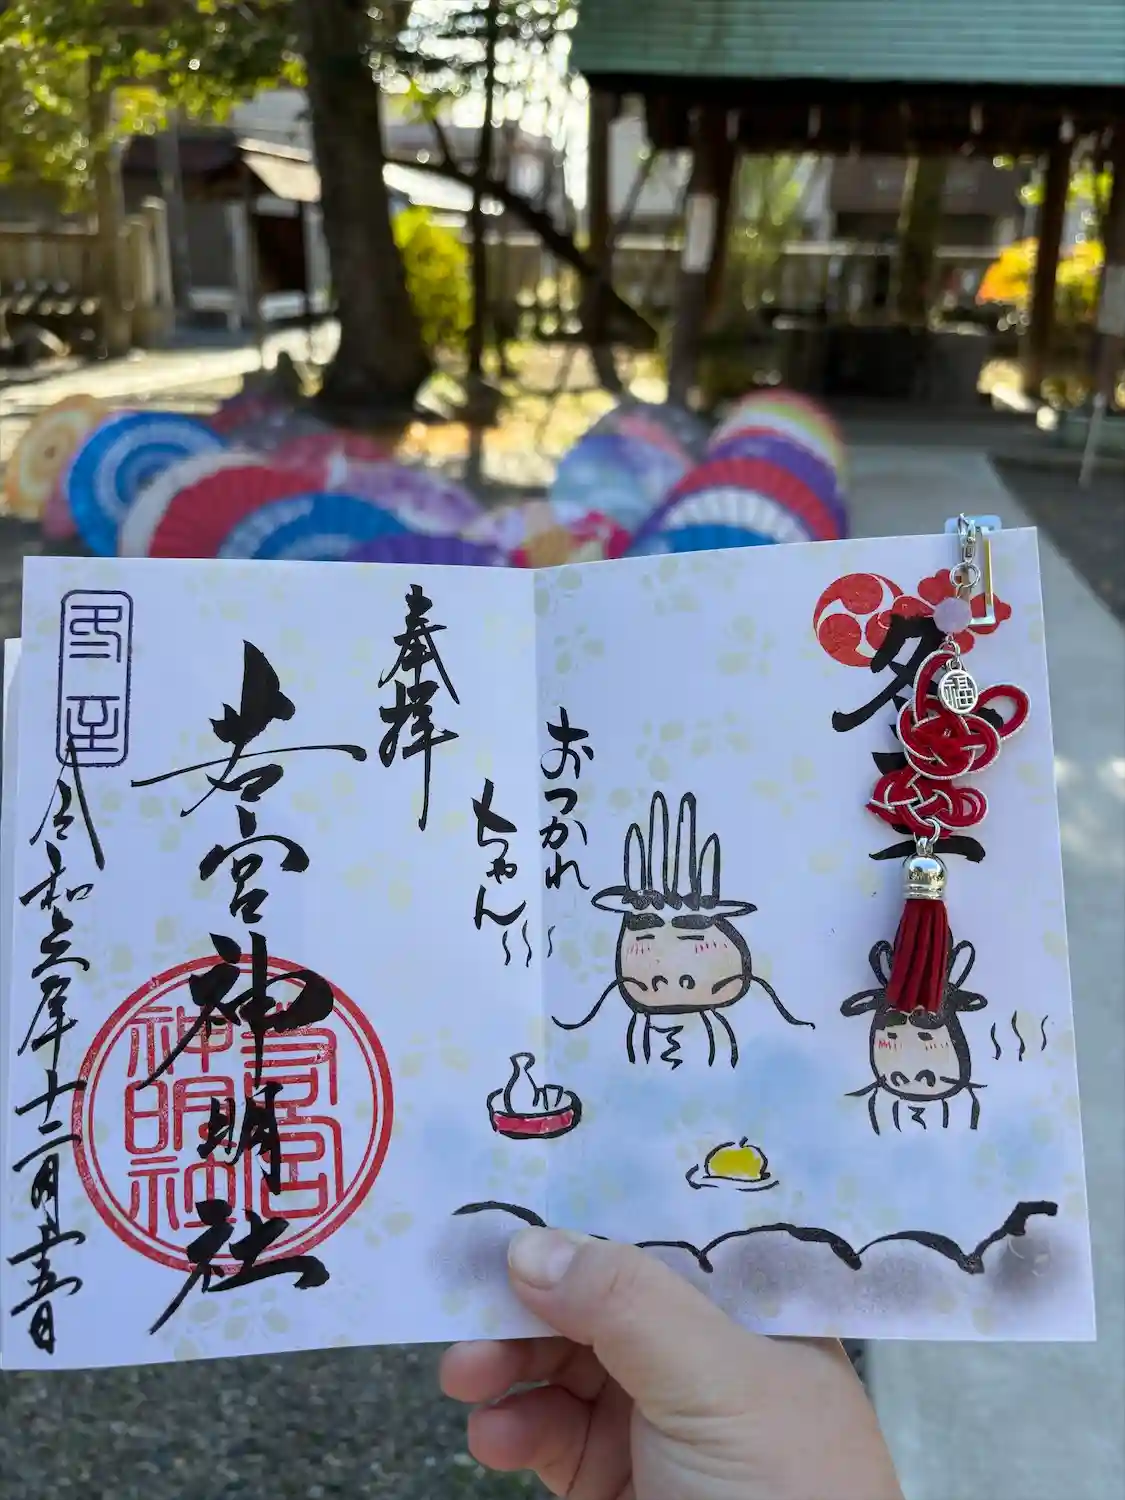 冬至
福
おつかれ
ちゃん
奉拝
若宮神明社
若宮
神明社
冬至
令和六年十二月廿五日